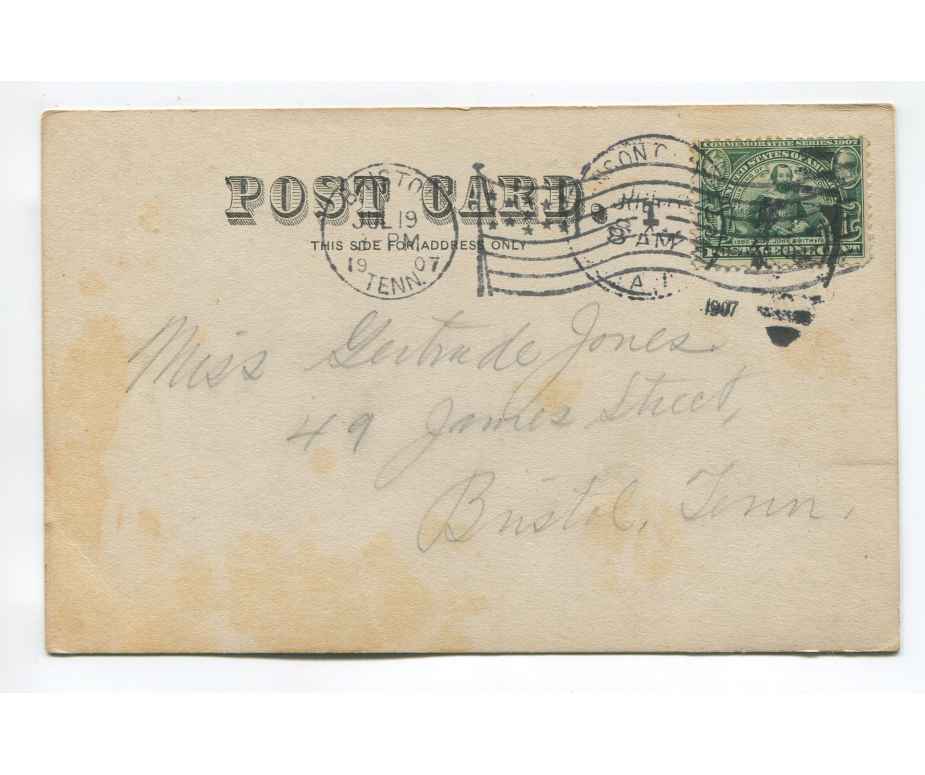 POST CARD
THIS SIDE FOR ADDRESS ONLY
BRISTOL
JUL 19
PM
1907
TENN.
8 AM
1907
COMMEMORATIVE SERIES 1907
UNITED STATES OF AMERICA
POSTAGE ONE CENT
Miss Gertrude Jones.
49 James Street,
Bristol, Tenn.